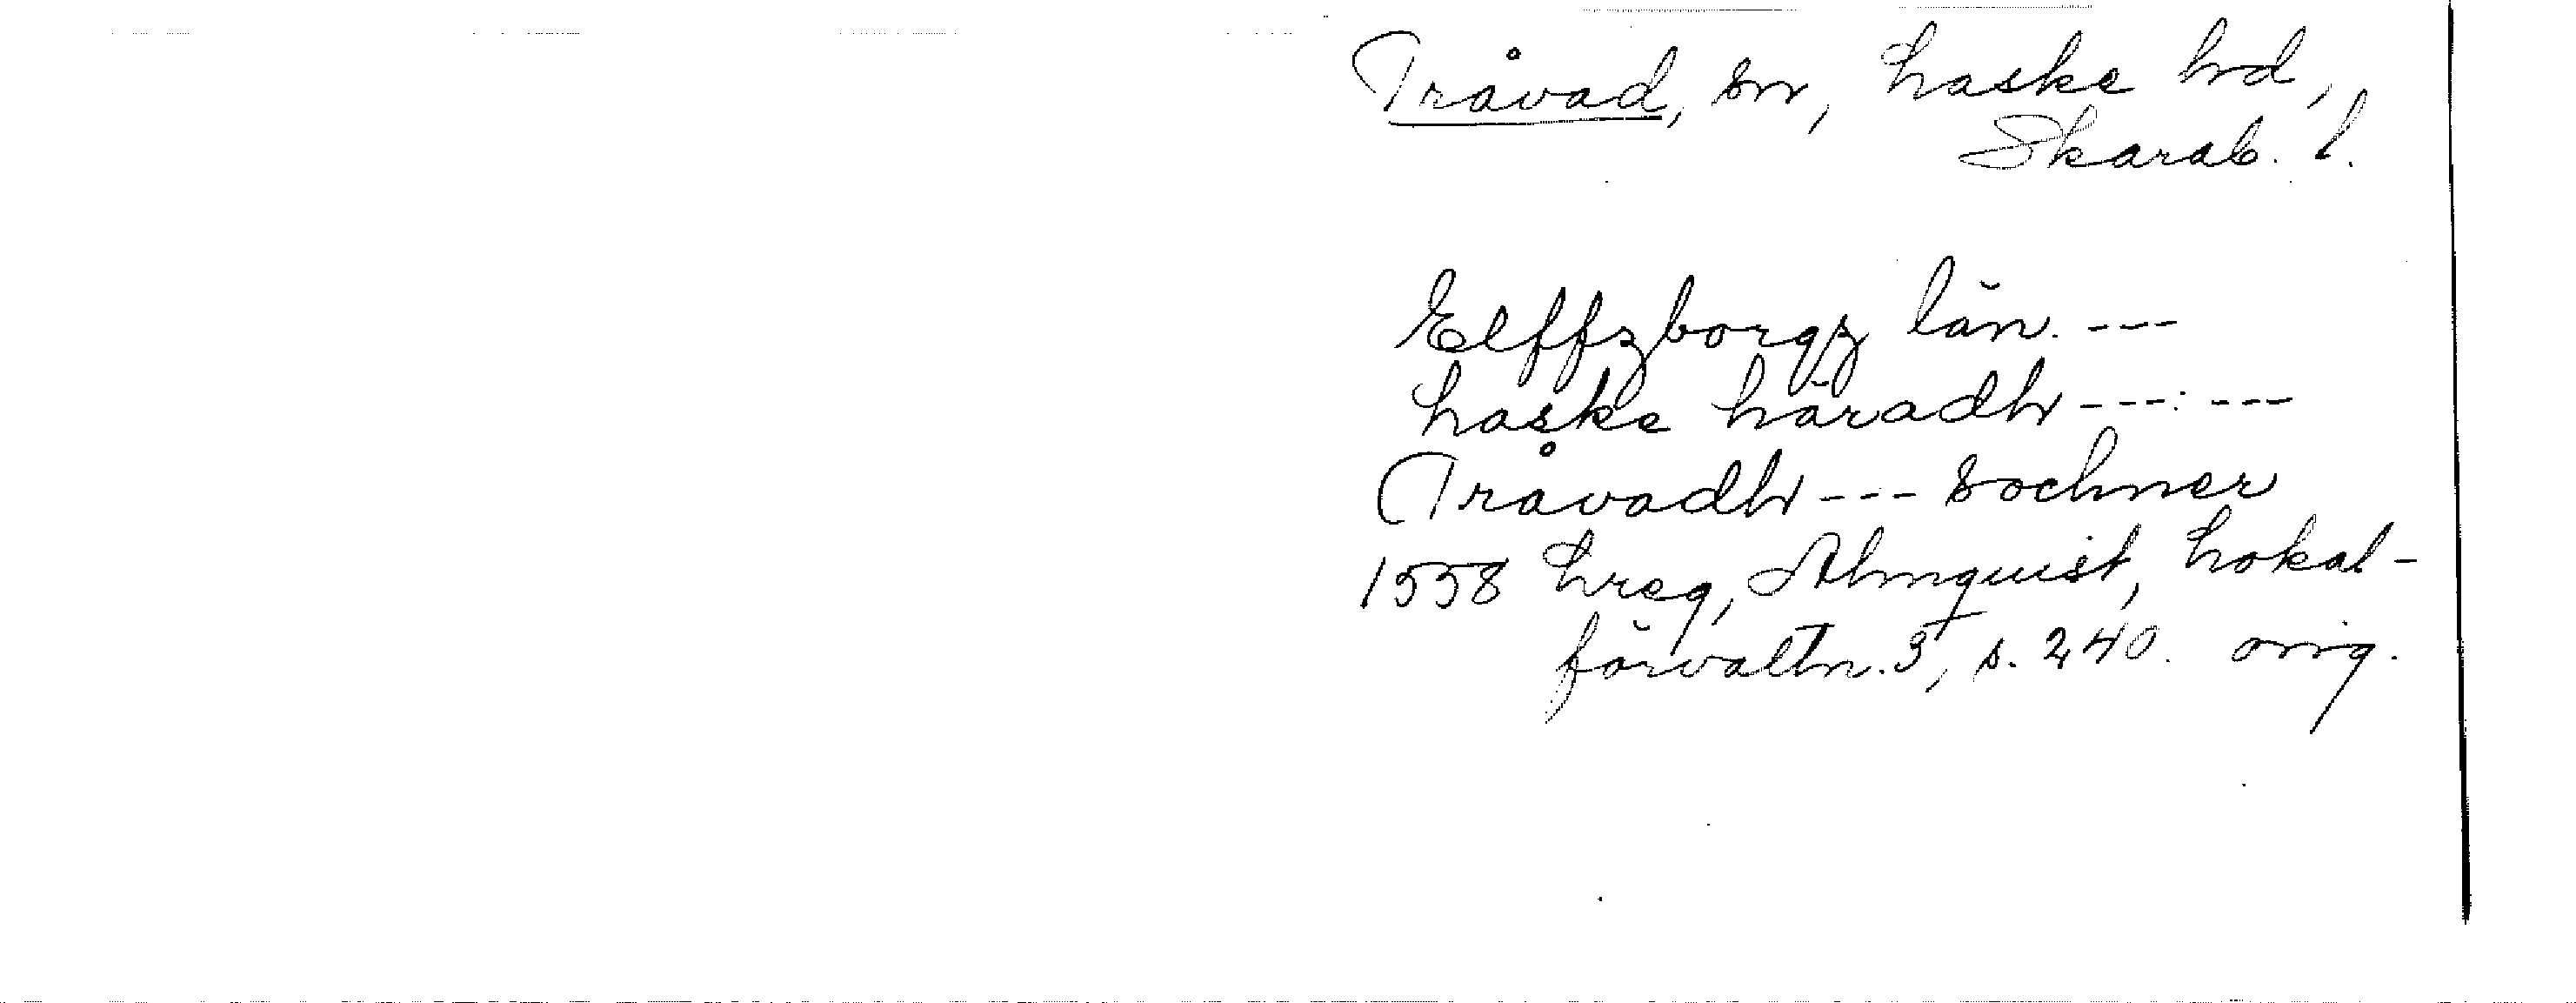 Tråvad, sn, Laske hd,
Skarab. l.
Elffzborgz län. ---
Laske häradh ---:---
Tråvadh --- sochner
1558 hreg, Almquist, Lokal-
förvaltn. 3, s. 240. orig.